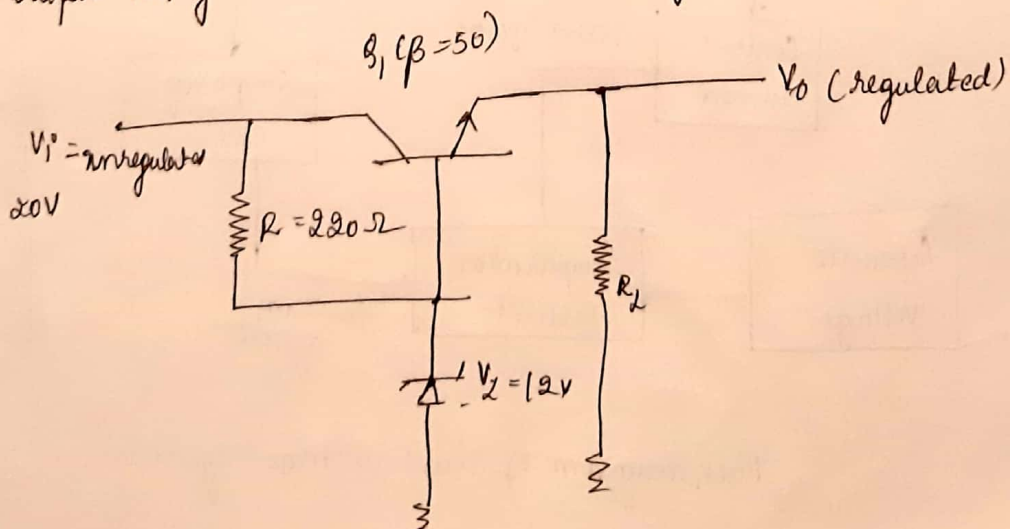 Q1 (β = 50)
V0 (regulated)
Vi = unregulated
20V
R = 220 Ω
RL
VZ = 12V